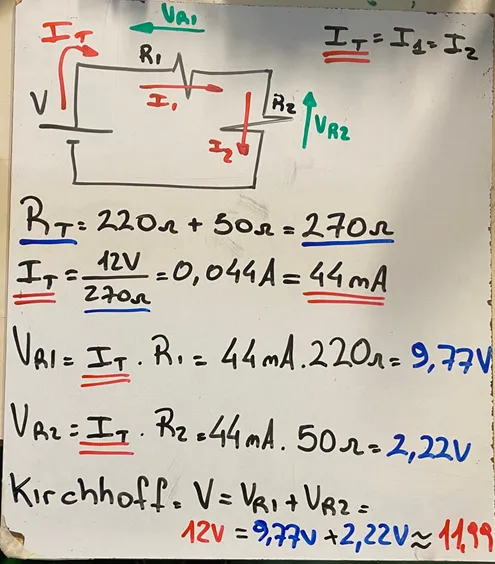 VR1
IT
IT = I1 = I2
R1
I1
V
R2
I2
VR2
RT = 220Ω + 50Ω = 270Ω
IT = 12V / 270Ω = 0,044A = 44mA
VR1 = IT . R1 = 44mA . 220Ω = 9,77V
VR2 = IT . R2 = 44mA . 50Ω = 2,22V
Kirchhoff = V = VR1 + VR2 =
12V = 9,77V + 2,22V ≈ 11,99